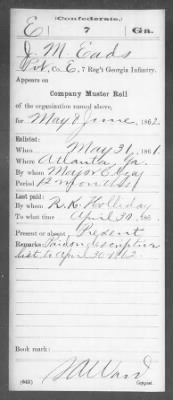 (Confederate.)
E 7 Ga.
J M Eads
Pvt, Co. E, 7 Reg't Georgia Infantry.
Appears on
Company Muster Roll
of the organization named above,
for May & June, 1862.
Enlisted:
When May 31, 1861.
Where Atlanta, Ga.
By whom Major
Period 12 months
Last paid:
By whom R. K. Holliday
To what time April 30, 186
Present or absent Present
Remarks: Paid on descriptive
list to April 30 1862.
Book mark:
(642) Ward
Copyist.